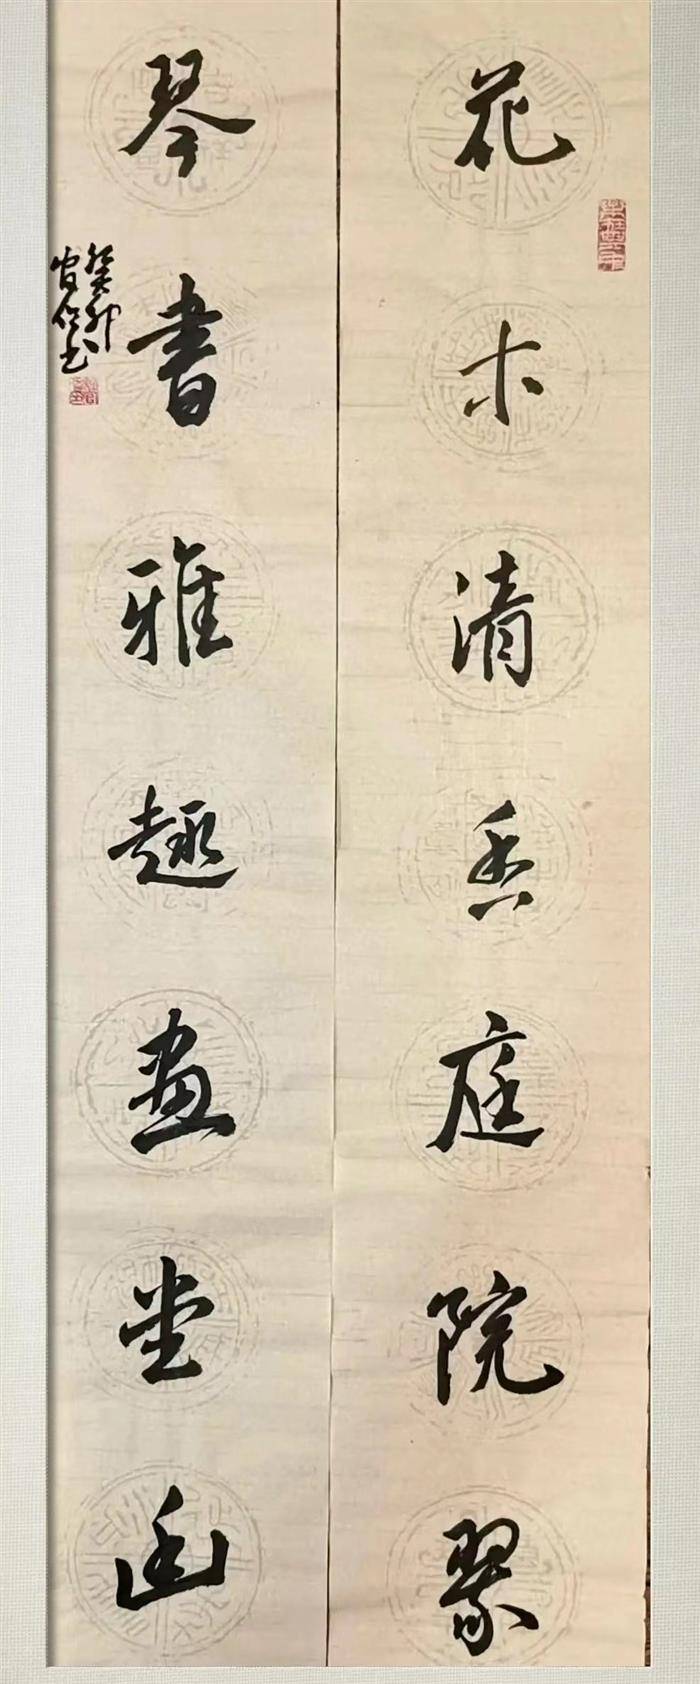 花木清香庭院翠
琴书雅趣画堂幽
癸卯